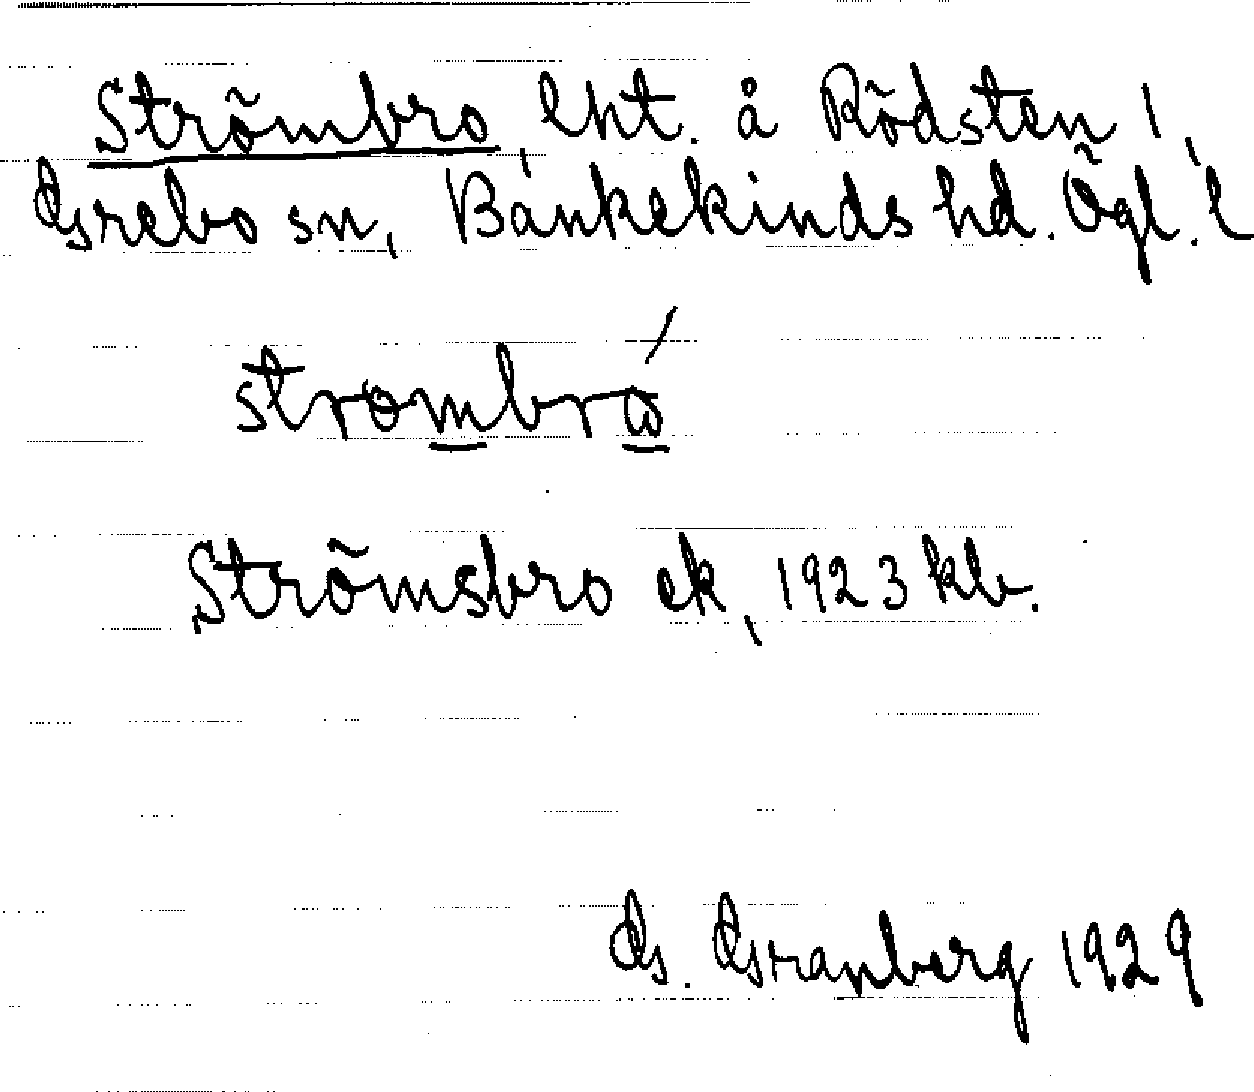 Strömbro, lht. å Rödsten 1,
Grebo sn, Bankekinds hd. Ögl. l
strombrò
Strömsbro ek, 1923 klr.
G. Granberg 1929